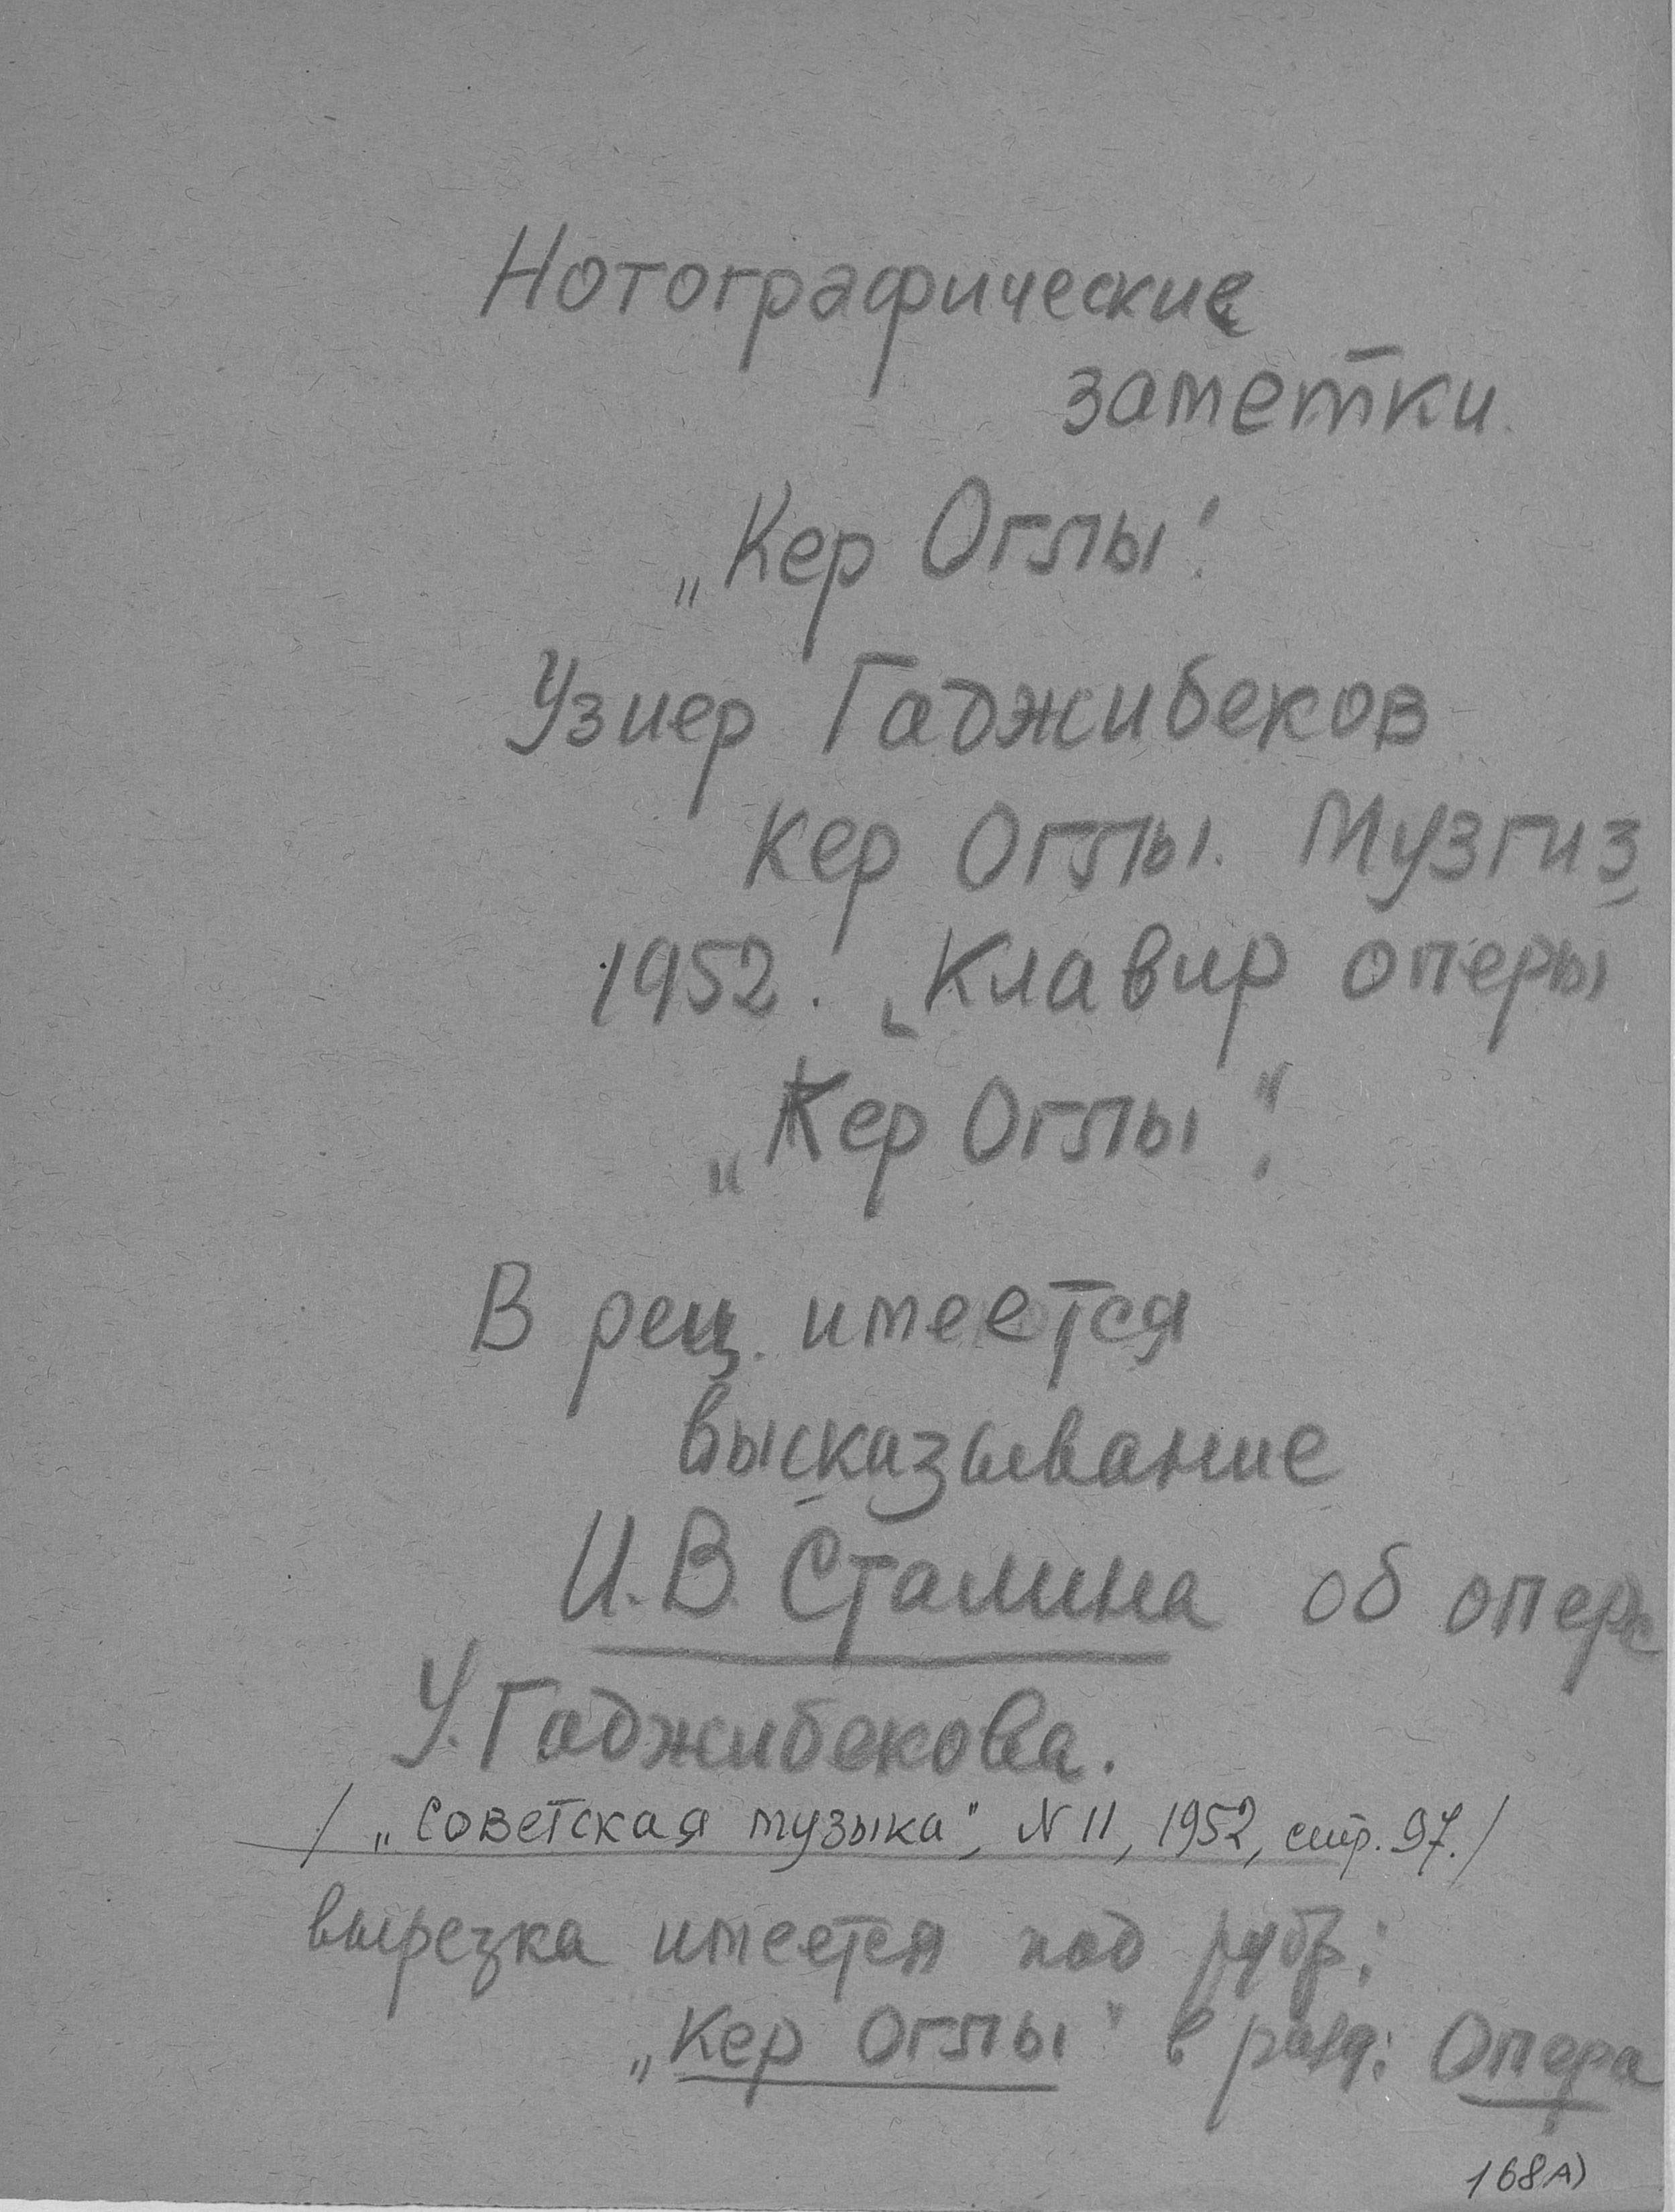 Нотографические
заметки.
„Кер Оглы".
Узиер Гаджибеков
Кер Оглы. Музгиз,
1952. „Клавир оперы
„Кер Оглы".
В рец. имеется
высказывание
И.В. Сталина об опере
У. Гаджибекова.
/ „Советская музыка", N 11, 1952, стр. 97./
вырезка имеется под рубр:
„Кер Оглы" в разд: Опера
168А)